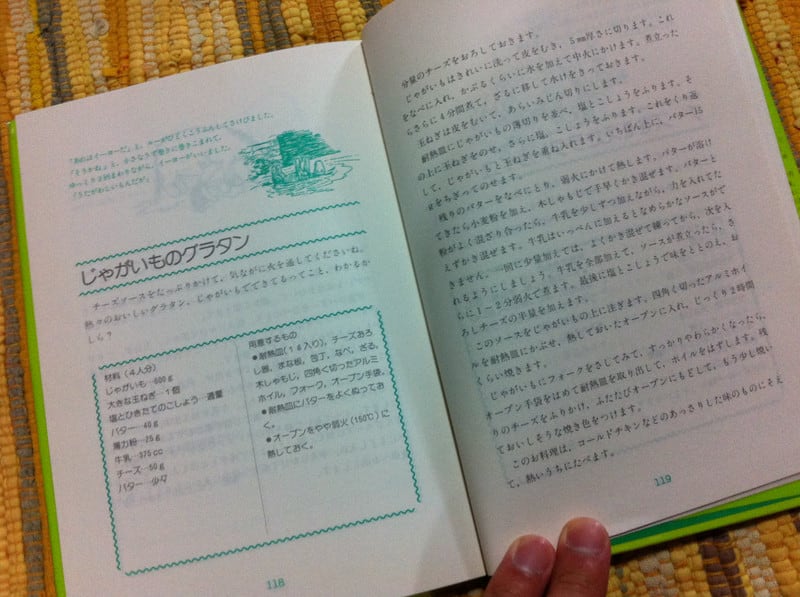 「あれはイーヨーだ」と、ルーがひどくこうふんしてさけびました。
「そうかね」と、小さなうず巻きに巻きこまれて、
ゆっくり3回まわりながら、イーヨーがいいました。
「うたがわしいもんだが」
じゃがいものグラタン
チーズソースをたっぷりかけて、気ながに火を通してくださいね。
熱々のおいしいグラタン、じゃがいもでできてるってこと、わかるか
しら？
材料（4人分）
じゃがいも…600g
大きな玉ねぎ…1個
塩とひきたてのこしょう…適量
バター…40g
薄力粉…25g
牛乳…375cc
チーズ…50g
バター…少々
用意するもの
●耐熱皿(1.4入り)，チーズおろ
し器，まな板，包丁，なべ，ざる，
木しゃもじ，四角く切ったアルミ
ホイル，フォーク，オーブン手袋。
●耐熱皿にバターをよくぬってお
く。
●オーブンをやや弱火(150℃)に
熱しておく。
118
分量のチーズをおろしておきます。
じゃがいもはきれいに洗って皮をむき、5mm厚さに切ります。これ
をなべに入れ、かぶるくらいに水を加えて中火にかけます。煮立った
らさらに4分間煮て、ざるに移して水けをきっておきます。
玉ねぎは皮をむいて、あらいみじん切りにします。
耐熱皿にじゃがいもの薄切りを並べ、塩とこしょうをふります。そ
の上に玉ねぎをのせ、さらに塩、こしょうをふります。これをくり返
して、じゃがいもと玉ねぎを重ね入れます。いちばん上に、バター15
gをちぎってのせます。
残りのバターをなべにとり、弱火にかけて熱します。バターが溶け
てきたら小麦粉を加え、木しゃもじで手早くかき混ぜます。バターと
粉がよく混ざり合ったら、牛乳を少しずつ加えながら、力を入れてた
えずかき混ぜます。牛乳はいっぺんに加えるとなめらかなソースがで
きません。一回に少量加えては、よくかき混ぜて練ってから、次を入
れるようにしましょう。牛乳を全部加えて、ソースが煮立ったら、さ
らに1～2分弱火で煮ます。最後に塩とこしょうで味をととのえ、お
ろしチーズの半量を加えます。
このソースをじゃがいもの上に注ぎます。四角く切ったアルミホイ
ルを耐熱皿にかぶせ、熱しておいたオーブンに入れ、じっくり2時間
くらい焼きます。
じゃがいもにフォークをさしてみて、すっかりやわらかくなったら、
オーブン手袋をはめて耐熱皿を取り出して、ホイルをはずします。残
りのチーズをふりかけ、ふたたびオーブンにもどして、もう少し焼い
ておいしそうな焼き色をつけます。
このお料理は、コールドチキンなどのあっさりした味のものにそえ
て、熱いうちにたべます。
119